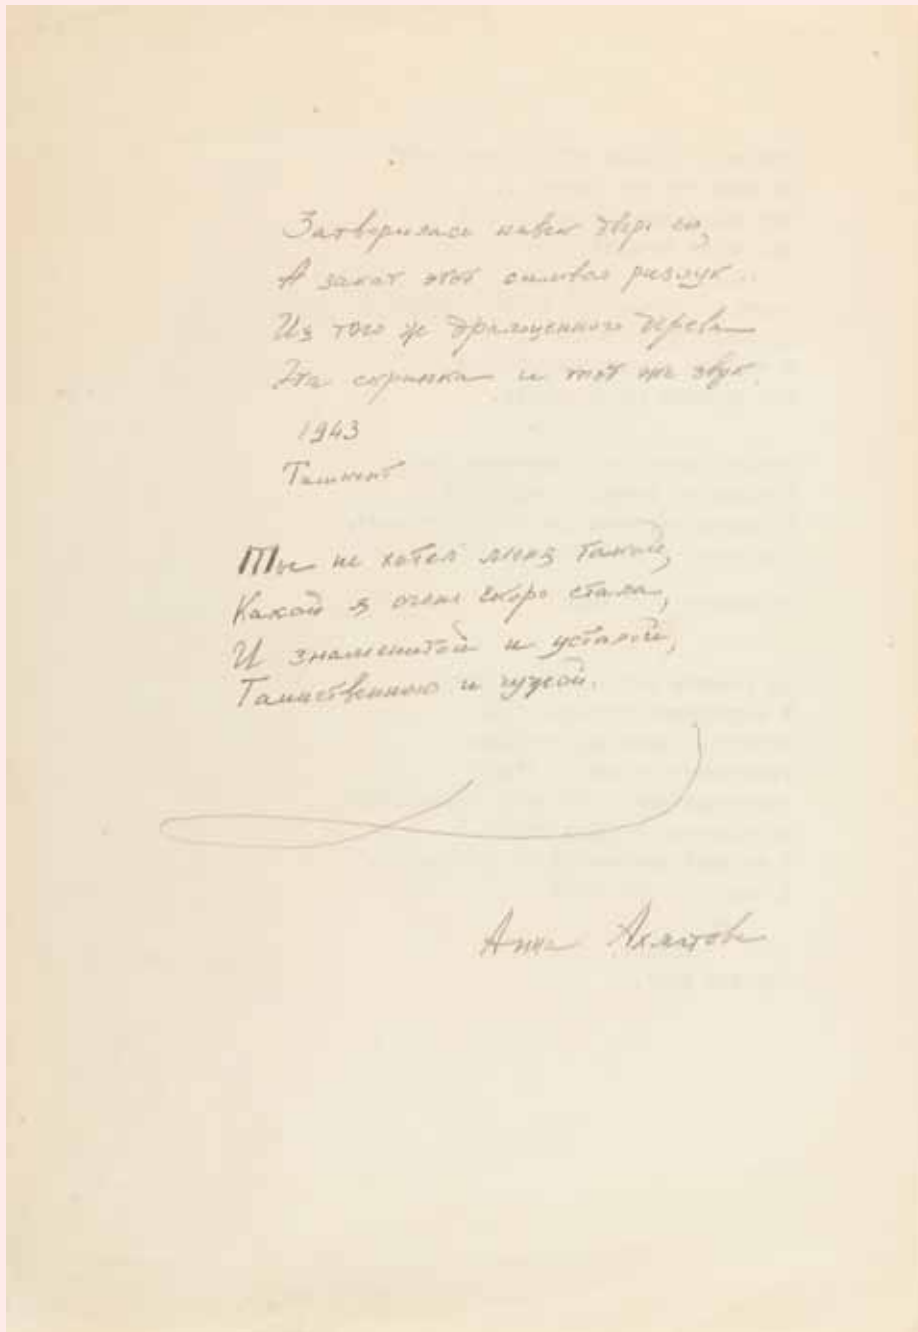 Затворилась навек дверь его,
А закат этот символ разлук..
Из того же драгоценного дерева
Эта скрипка и тот же звук.
1943
Ташкент
Ты не хотел меня такой,
Какой я очень скоро стала,
И знаменитой и усталой,
Таинственною и чужой.
Анна Ахматова